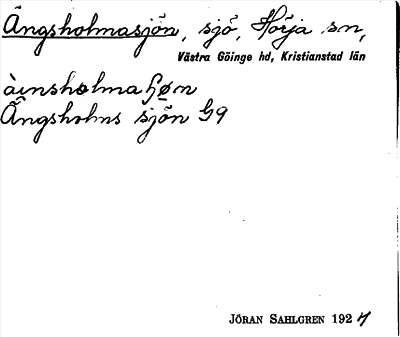 Ängsholmasjön, sjö, Hörja sn,
Västra Göinge hd, Kristianstad län
Ängsholms sjön G9
JÖRAN SAHLGREN 1927